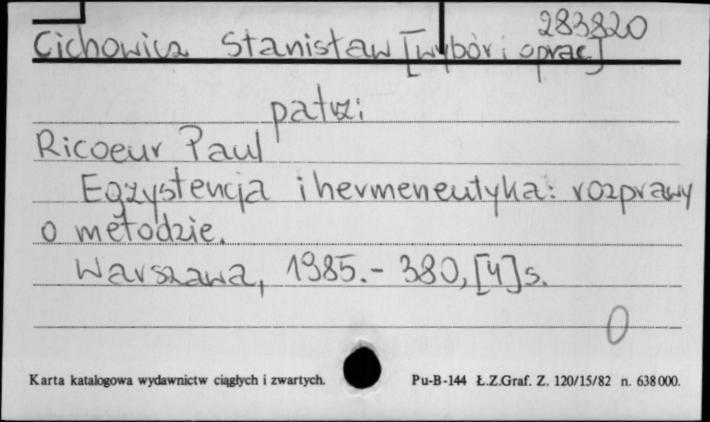 283820
Cichowicz Stanisław [wybór i oprac]
patrz:
Ricoeur Paul
Egzystencja i hermeneutyka: rozprawy
o metodzie.
Warszawa, 1985.- 380,[4]s.
0
Karta katalogowa wydawnictw ciągłych i zwartych. Pu-B-144 Ł.Z.Graf. Z. 120/15/82 n. 638000.